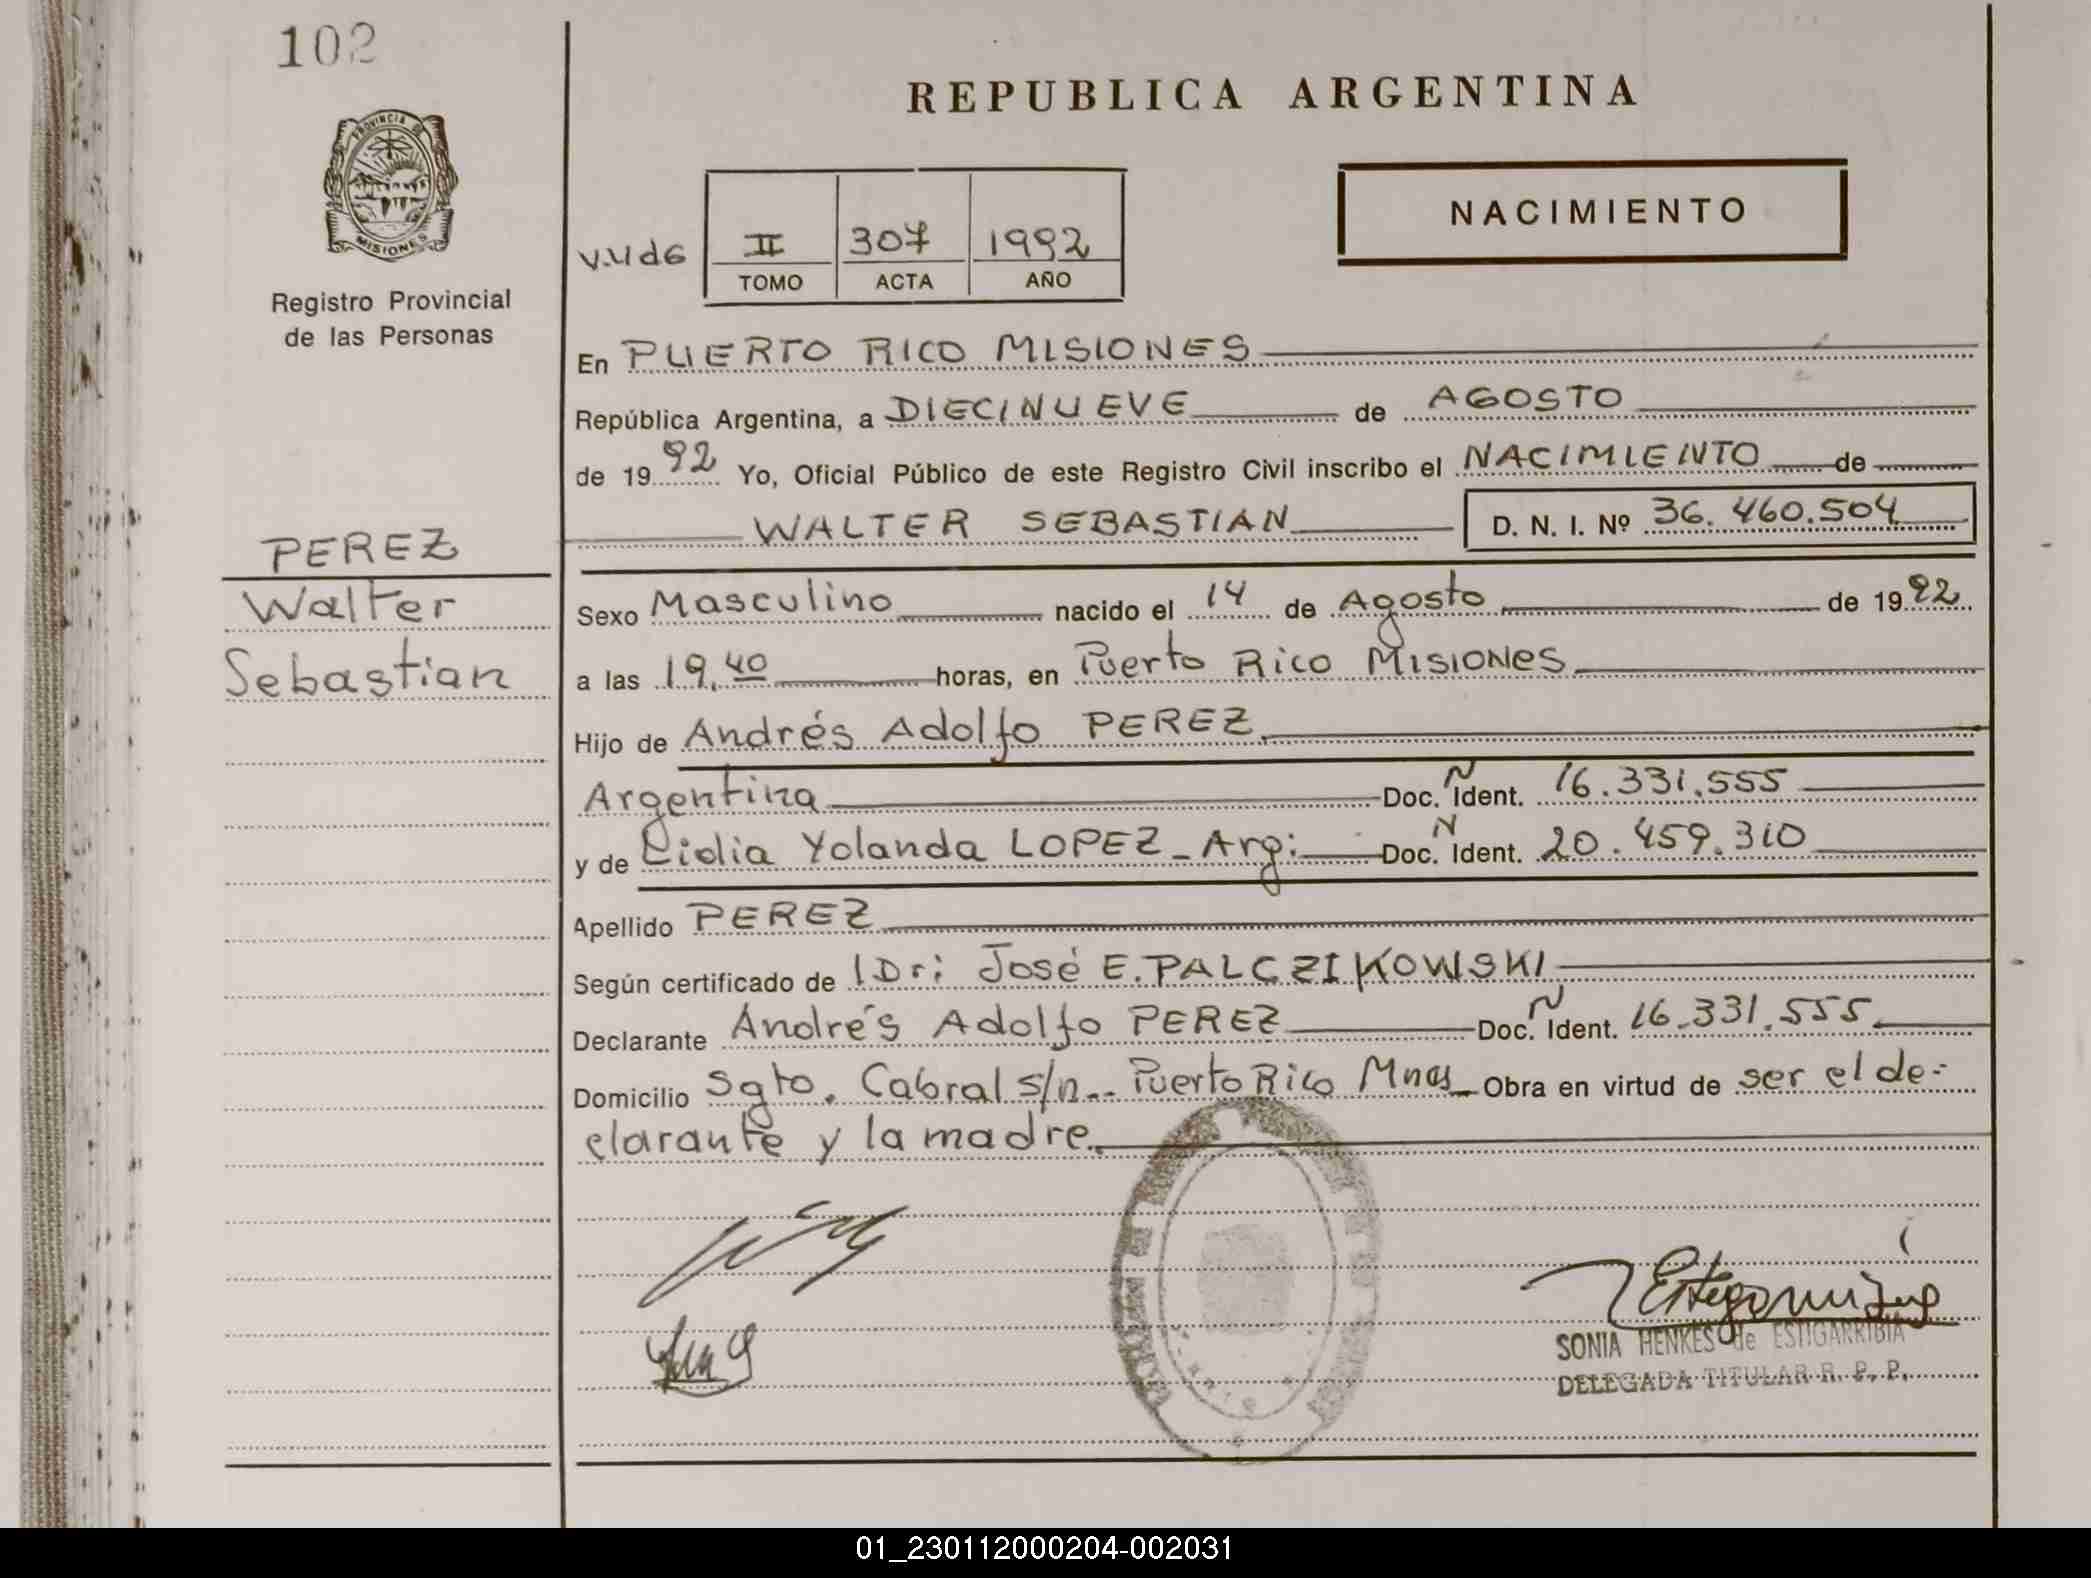 102
REPUBLICA ARGENTINA
PROVINCIA DE
MISIONES
Registro Provincial
de las Personas
NACIMIENTO
II 307 1992
TOMO ACTA AÑO
En PUERTO RICO MISIONES
República Argentina, a DIECINUEVE de AGOSTO
de 1992 Yo, Oficial Público de este Registro Civil inscribo el NACIMIENTO de
WALTER SEBASTIAN D. N. I. Nº 36.460.504
PEREZ
Walter
Sebastian
Sexo Masculino nacido el 14 de Agosto de 1992
a las 19,40 horas, en Puerto Rico Misiones
Hijo de Andrés Adolfo PEREZ
Argentina Doc. Ñ Ident. 16.331.555
y de Lidia Yolanda LOPEZ - Arg: Doc. N Ident. 20.459.310
Apellido PEREZ
Según certificado de 1 Dr: José E. PALCZIKOWSKI
Declarante Andrés Adolfo PEREZ Doc. Ñ Ident. 16.331.555
Domicilio Sgto. Cabral s/n.. Puerto Rico Mnes Obra en virtud de ser el de-
clarante y la madre.
SONIA HENKES de ESTIGARRIBIA
DELEGADA TITULAR R. P. P.
01_230112000204-002031